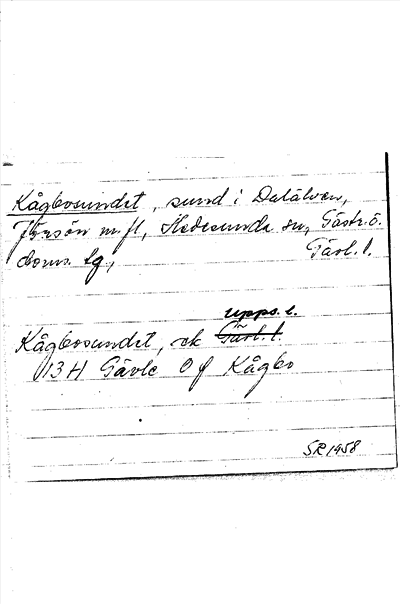 Kågbosundet, sund i Dalälven,
Färsön m.fl, Hedesunda sn, Gästr.ö.
doms. lg, Gävl. l.
Upps. l.
Kågbosundet, ek Gävl. l.
13H Gävle 0 f Kågbo
SR 1958